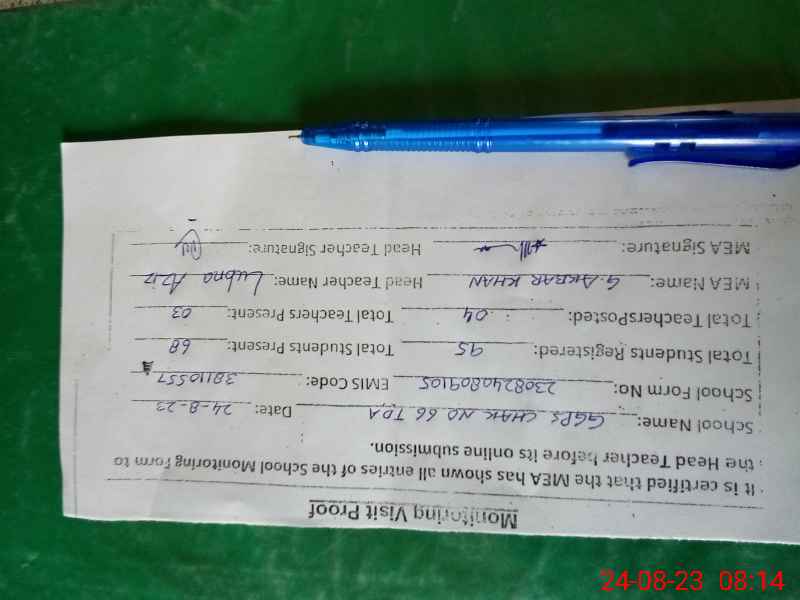 Monitoring Visit Proof
It is certified that the MEA has shown all entries of the School Monitoring Form to
the Head Teacher before its online submission.
School Name: GGPS CHAK NO 66 TDA Date: 24-8-23
School Form No: 2308240809105 EMIS Code: 38110557
Total Students Registered: 95 Total Students Present: 68
Total TeachersPosted: 04 Total Teachers Present: 03
MEA Name: G. AKBAR KHAN Head Teacher Name: Lubna Aziz
MEA Signature: Head Teacher Signature:
24-08-23 08:14